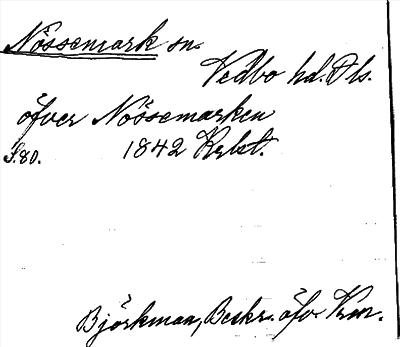 Nössemark sn.
Vedbo hd. Dls.
öfver Nössemarken
S.80. 1842 Krlst.
Björkman, Beskr. öfv.